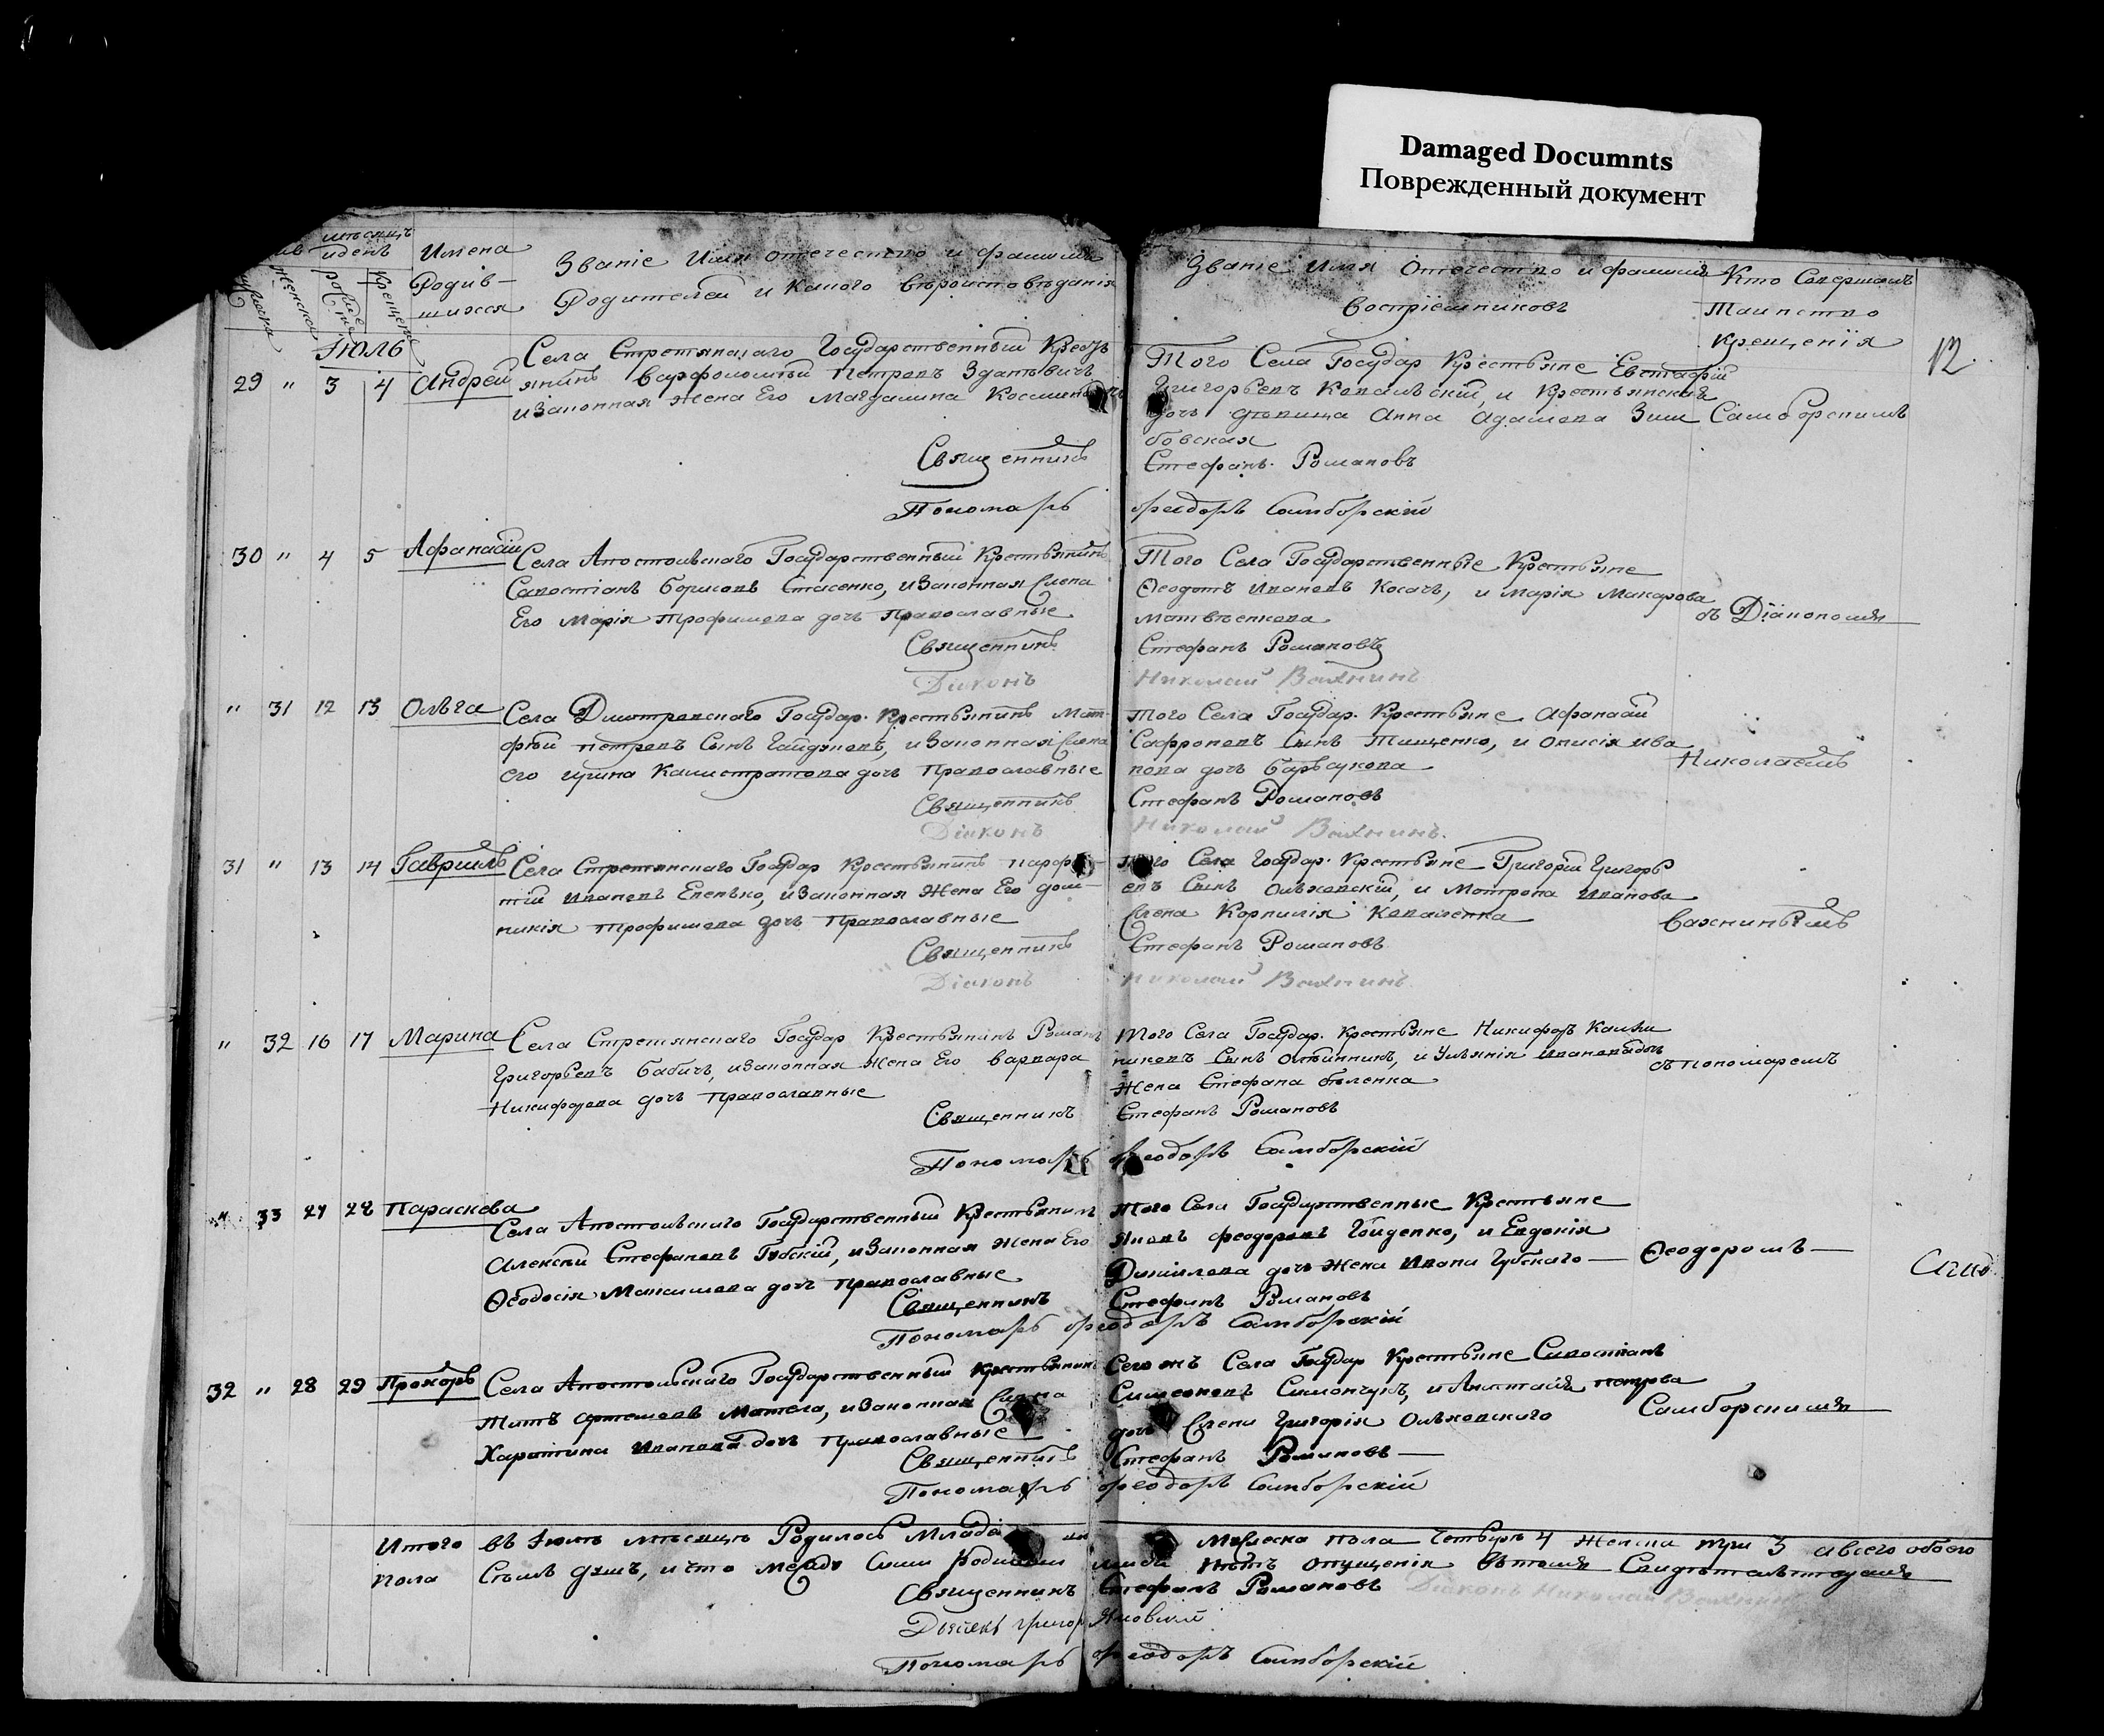 Damaged Documnts
Поврежденный документ
мѣсяцъ
и день
Имена
Родив-
шихся
Званіе Имя отечество и фамилія
Родителей и какого вѣроисповѣданія
Званіе Имя Отечество и фамилія
Воспріемниковъ
Кто Совершалъ
Таинство
Крещенія
12
Іюль
29 " 3 4 Андрей
Села Стретинскаго Государственный Кресть
янинъ Варфоломей Петровъ
и Законная Жена Его Магдалина
Священникъ
Пономарь
Того Села Государ Крестьяне Евстафій
Григорьевъ Ковальскій, и Крестьянская
дочь девица Анна Адамова
бовская
Стефанъ Романовъ
Феодоръ Самборскій
Самборскимъ
30 " 4 5 Афанасій
Села Апостольскаго Государственный Крестьянинъ
Савостіанъ Борисовъ Стасенко, и Законная Жена
Его Марія Трофимова дочь Православные
Священникъ
Діаконъ
Того Села Государственные Крестьяне
Ѳеодотъ Ивановъ Косачъ, и Марія Макарова
Матвѣенкова
Стефанъ Романовъ
Николай Вахнинъ
съ Діакономъ
" 31 12 13 Ольга
Села Димтровскаго Государ. Крестьянинъ Мат
фей Петровъ Сынъ Гайдуковъ, и Законная Жена
его Ирина Калистратова дочь Православные
Священникъ
Діаконъ
того Села Государ. Крестьяне Афанасій
Сафроновъ Сынъ Тищенко, и Онисія Ива
нова дочь Барсукова
Стефанъ Романовъ
Николай Вахнинъ.
Николаемъ
31 " 13 14 Гавріилъ
Села Стретинскаго Государ Крестьянинъ
тій Ивановъ Еленько, и Законная Жена Его Дом-
никія Трофимова дочь Православные
Священникъ
Діаконъ
того Села Государ. Крестьяне Григорій Григорь
евъ Сынъ Ольховскій, и Мотрона Иванова
Жена Корнилія Коваленка
Стефанъ Романовъ
Николай Вахнинъ
Вахнинымъ
" 32 16 17 Марина
Села Стретинскаго Государ Крестьянинъ Романъ
Григорьевъ Бабичъ, и Законная Жена Его Варвара
Никифорова дочь Православные
Священникъ
Пономарь
того Села Государ. Крестьяне Никифоръ
никовъ Сынъ Олейникъ, и Ульянія Иванова дочь
Жена Стефана Беленка
Стефанъ Романовъ
Феодоръ Самборскій
съ Пономаремъ
" 33 27 28 Параскева
Села Апостольскаго Государственный Крестьянинъ
Алексей Стефановъ Губскій, и Законная Жена Его
Ѳеодосія Максимова дочь Православные
Священникъ
Пономарь
того Села Государственные Крестьяне
Яковъ Феодоровъ Гайденко, и Евдокія
Данилова дочь Жена Ивана Губскаго
Стефанъ Романовъ
Феодоръ Самборскій
Ѳеодоромъ
32 " 28 29 Прохоръ
Села Апостольскаго Государственный Крестьянинъ
Титъ Артемовъ Мотела, и Законная Жена
Харитина Иванова дочь Православные
Священникъ
Пономарь
Сегожъ Села Государ Крестьяне Савостіанъ
Симеоновъ Симончукъ, и Анастасія Петрова
дочь Жена Григорія Ольховскаго
Стефанъ Романовъ
Феодоръ Самборскій
Самборскимъ
Итого въ Іюлѣ мѣсяцѣ Родилось Млад Мужеска пола Четыре 4 Женска три 3 а всего обоего
пола Семь душъ, и что между Сими родившими нетъ опущенія въ томъ Свидѣтельствуемъ
Священникъ Стефанъ Романовъ Діаконъ Николай Вахнинъ
Дьячекъ Григор Яновскій
Пономарь Феодоръ Самборскій